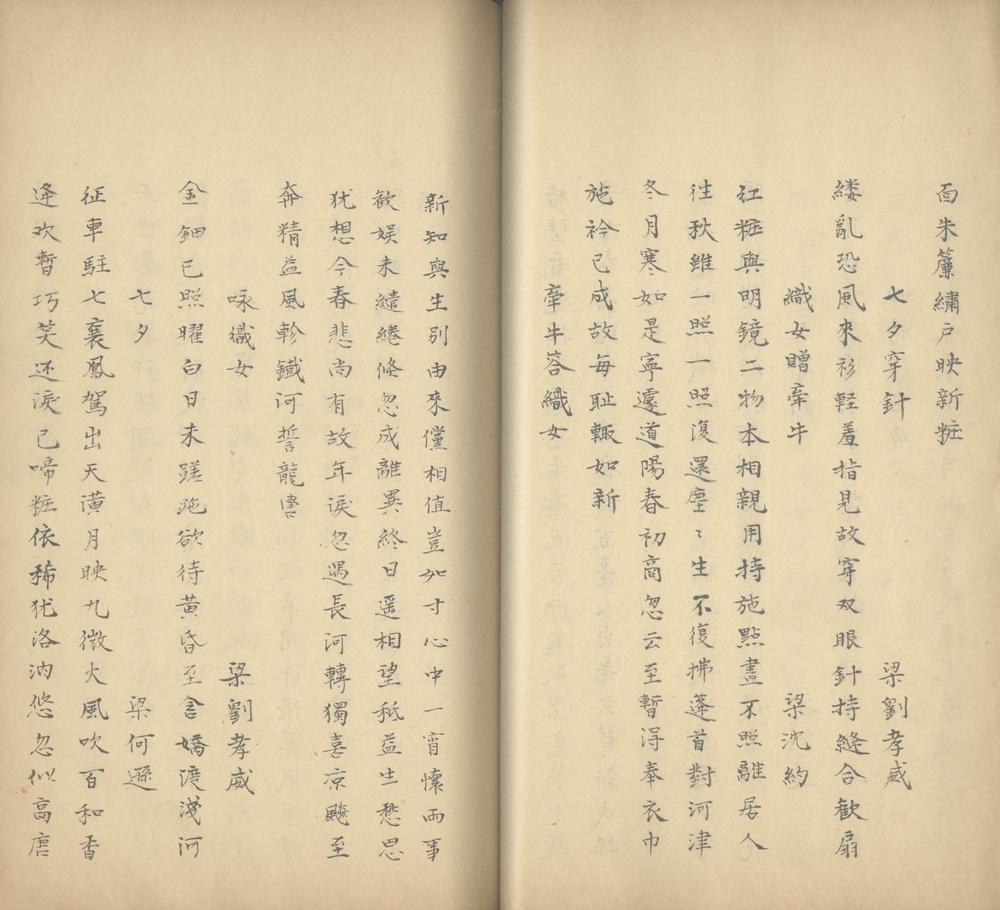 面朱簾繡户映新粧
七夕穿針 梁劉孝威
縷亂恐風來衫軽羞指見故穿双眼針持縫合歡扇
織女贈牽牛 梁沈約
紅粧與明鏡二物本相親用持施點畫不照離居人
往秋雖一照一照復還塵〻生不復拂蓬首對河津
冬月寒如是寧遽道陽春初商忽云至暫得奉衣巾
施衿已成故每耻輙如新
牽牛答織女
新知與生别由來儻相值豈如寸心中一宵懷兩事
歓娱未繾綣倐忽成離異終日遥相望秪益生愁思
犹想今春悲尚有故年淚忽遇長河轉獨喜凉飈至
奔精益風軫鐵河誓龍轡
咏織女 梁劉孝威
金鈿已照曜白日未蹉跎欲待黄昏至含嬌渡淺河
七夕 梁何遜
征車駐七襄鳳駕出天潢月映九微火風吹百和香
逢欢暫巧笑还淚已啼粧依稀犹洛汭悠忽似高唐